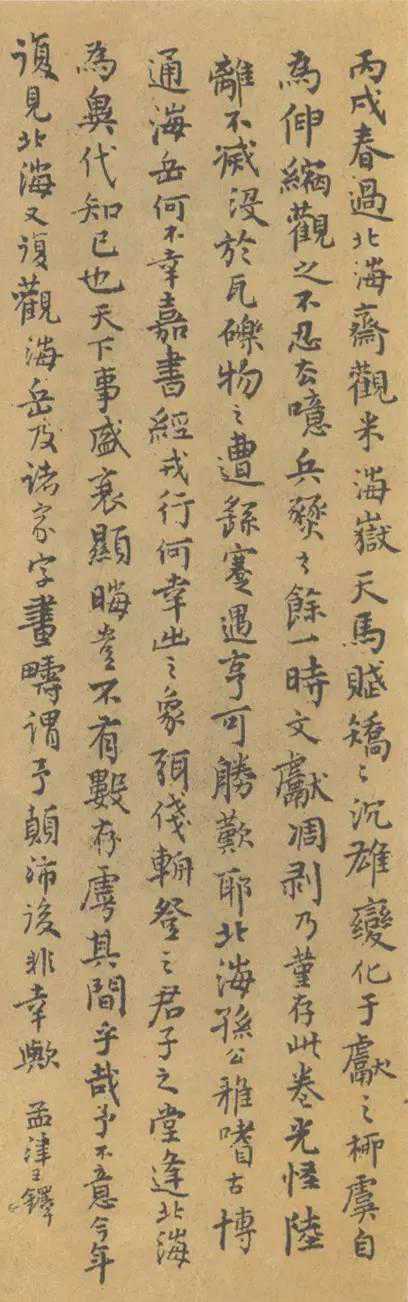 丙戌春過北海齋觀米海嶽天馬賦矯〻沉雄變化于獻之柳虞自
為伸縮觀之不忍去噫兵燹之餘一時文獻凋剥乃堇存此卷光怪陸
離不滅沒於瓦礫物之遭蹇遇亨可勝歎耶北海孫公雅嗜古博
通海岳何不幸嘉書經戎行何幸出之象弭伐輈登之君子之堂逢北海
為異代知已也天下事盛衰顯晦豈不有數存虖其間乎哉予不意今年
復見北海又復觀海岳及諸家字畫疇謂予顛沛後非幸歟 孟津王鐸